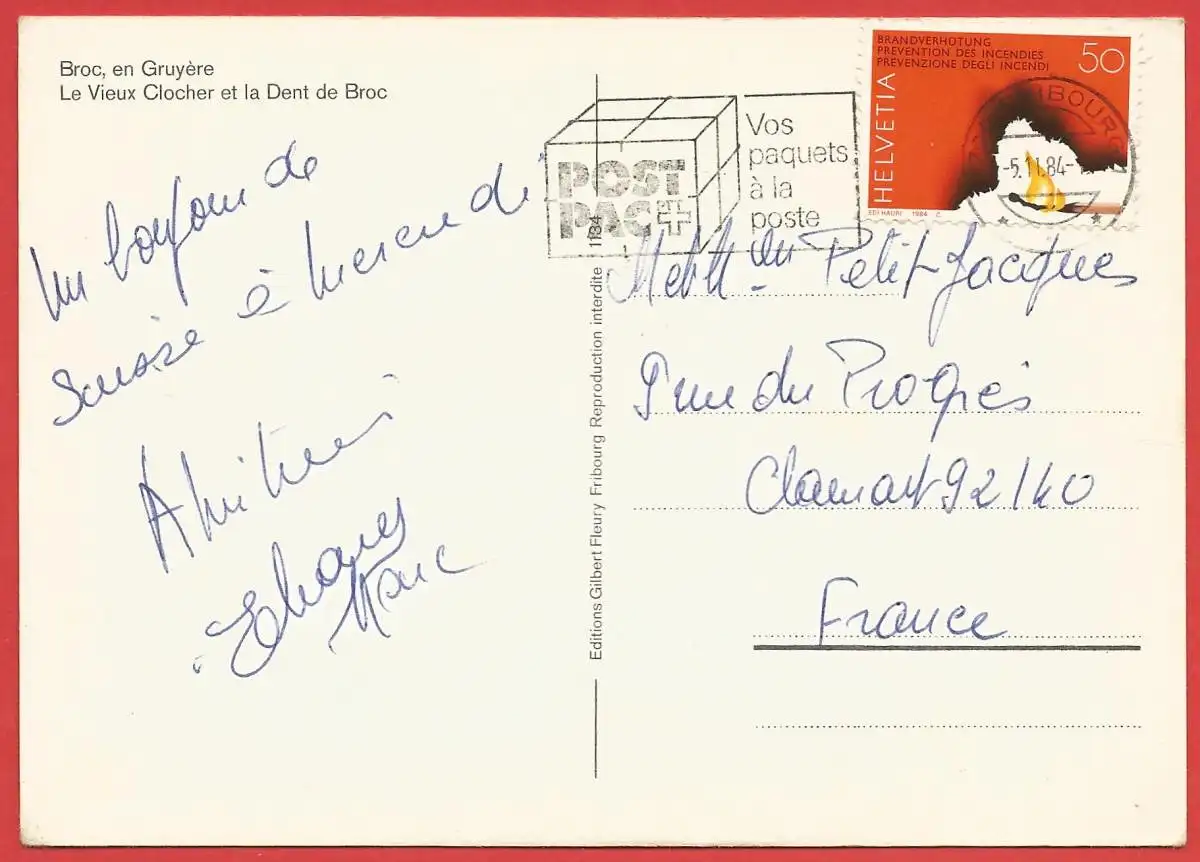 Broc, en Gruyère
Le Vieux Clocher et la Dent de Broc
Un bonjour de
Suisse à
Amitiés
Marc
Editions Gilbert Fleury Fribourg Reproduction interdite 1134
POST
PAC
PTT
Vos
paquets
à la
poste
BRANDVERHÜTUNG
PREVENTION DES INCENDIES
PREVENZIONE DEGLI INCENDI
50
HELVETIA
EDI HAURI 1984 C.
FRIBOURG
-5.11.84-
Petit-Jacques
rue du Progrès
Clamart 92140
France